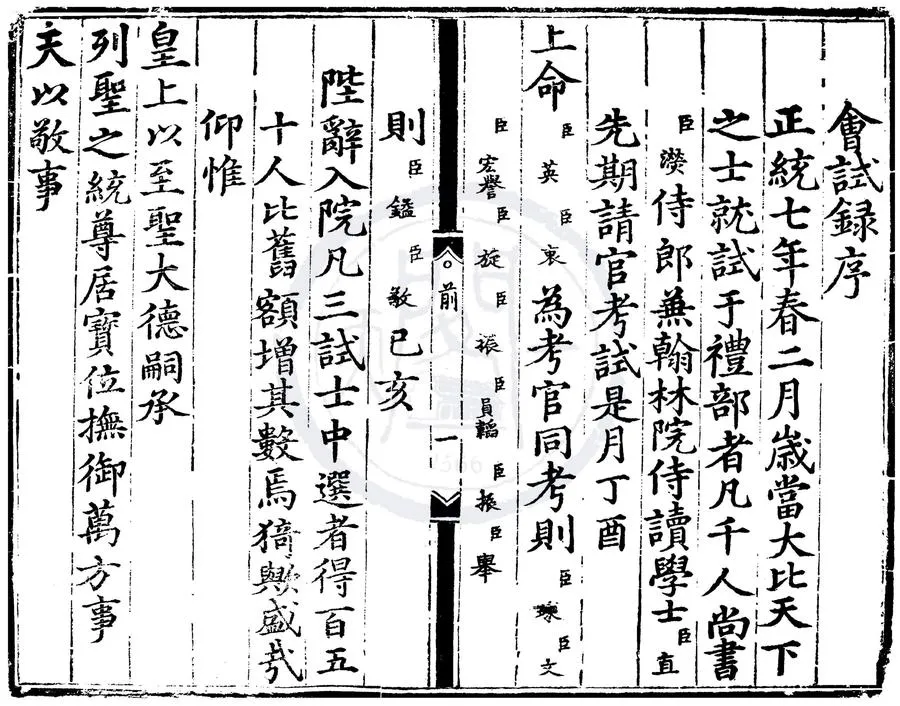 會試錄序
正統七年春二月歲當大比天下
之士就試于禮部者凡千人尚書
臣濙侍郎兼翰林院侍讀學士臣直
先期請官考試是月丁酉
上命臣英臣衷為考官同考則臣臣文
臣宏譽臣旋臣振臣員韜臣振臣舉
前 一
則臣鎰臣敏已亥
陛辭入院凡三試士中選者得百五
十人比舊額增其數焉猗歟盛哉
仰惟
皇上以至聖大德嗣承
列聖之統尊居寶位撫御萬方事
天以敬事
1566